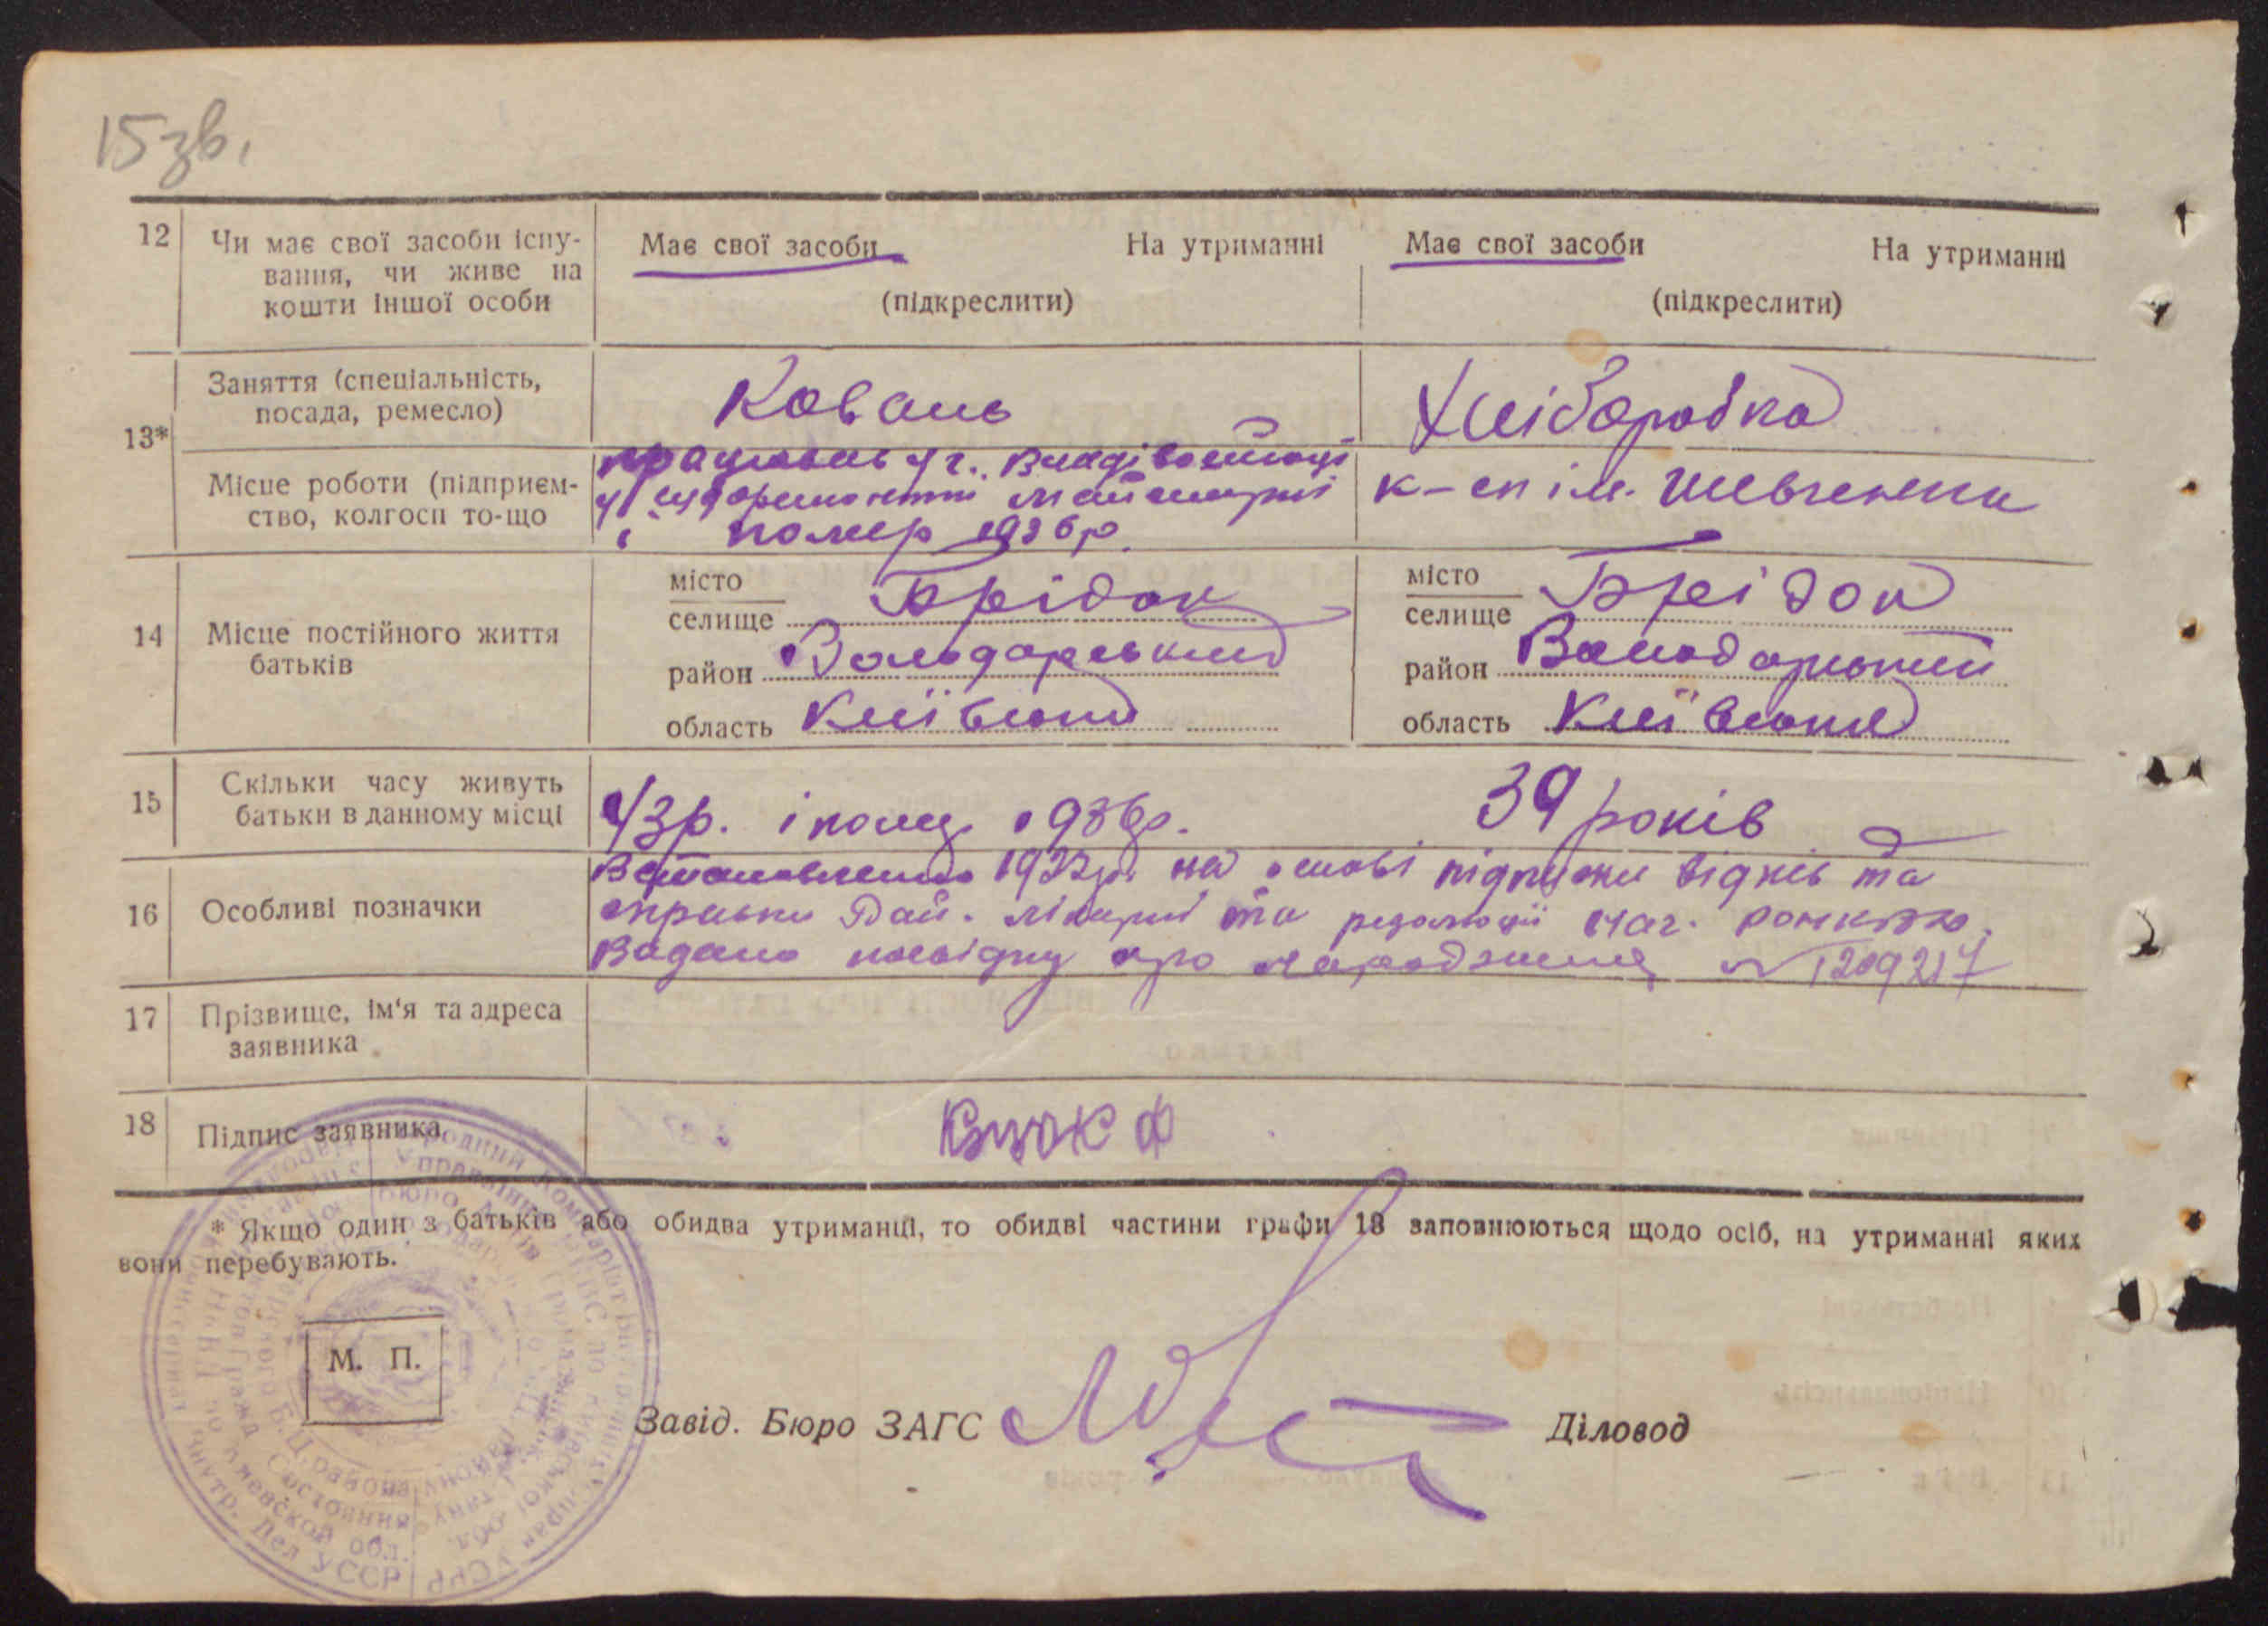 15 зв.
12
Чи має свої засоби існу-
вання, чи живе на
кошти іншої особи
Має свої засоби На утриманні
(підкреслити)
Має свої засоби На утриманні
(підкреслити)
13*
Заняття (спеціальність,
посада, ремесло)
Коваль
Хліборобка
Місце роботи (підприєм-
ство, колгосп то-що
працював у г. Владівостоці
у майстерні
і помер 1936 р.
к-сп ім. Шевченка
14
Місце постійного життя
батьків
місто
селище
район Володарський
область Київської
місто
селище
район Володарський
область Київської
15
Скільки часу живуть
батьки в данному місці
43 р. і помер 1936 р.
39 років
16
Особливі позначки
Встановлено 1922 р. на основі підписки відків та
справки Рай. лікарні та резолюції нач.
Видано посвідку про народження № 1209217
17
Прізвище, ім'я та адреса
заявника
18
Підпис заявника
* Якщо один з батьків або обидва утриманці, то обидві частини графи 13 заповнюються щодо осіб, на утриманні яких
вони перебувають.
М. П.
Завід. Бюро ЗАГС
Діловод